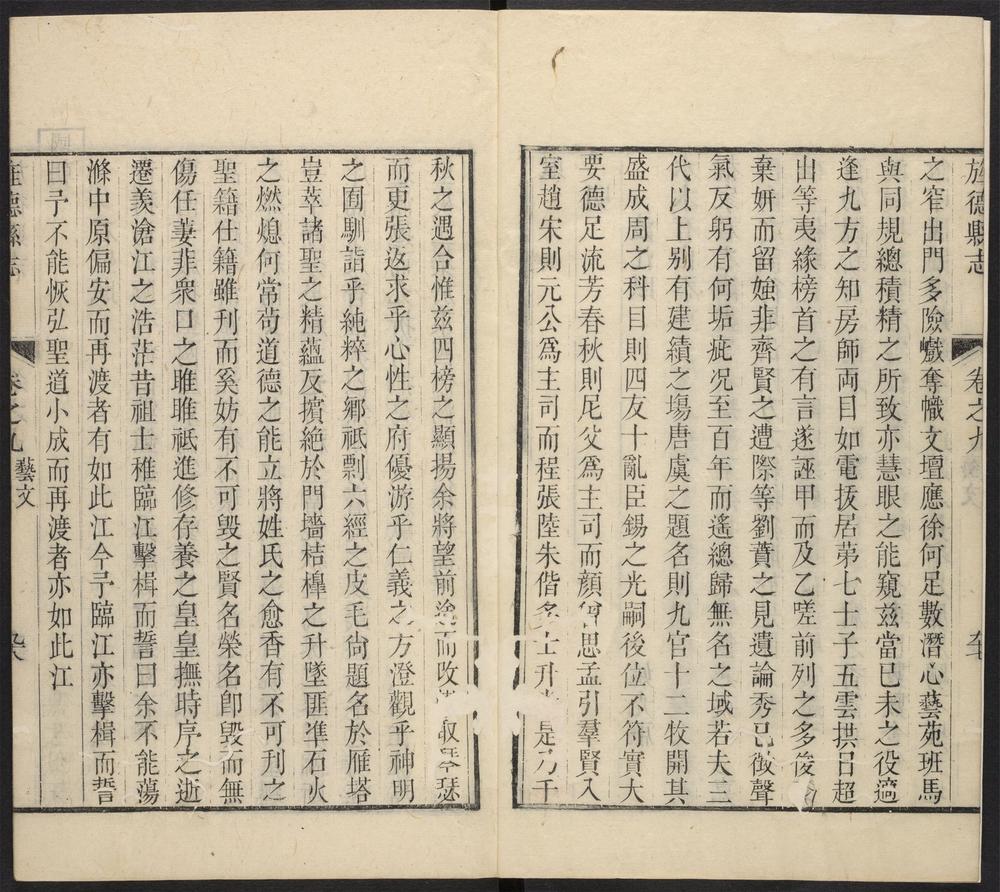 旌德縣志 卷之九
之窄出門多險巇奪幟文壇應徐何足數潛心藝苑班馬
與同規總積精之所致亦慧眼之能窺茲當己未之役適
逢九方之知房師兩目如電拔居苐七士子五雲拱呂超
出等夷緣榜首之有言遂誣甲而及乙嗟前列之多後
棄妍而留媸非齊賢之遭際等劉蕡之見遺論秀徵聲
氣反躬有何垢疵况至百年而遙總歸無名之域若夫三
代以上别有建績之塲唐虞之題名則九官十二牧開其
盛成周之科目則四友十亂臣錫之光嗣後位不符實大
要德足流芳春秋則尼父爲主司而顔曾思孟引羣賢入
室趙宋則元公爲主司而程張陸朱偕多士升是乃千
秋之遇合惟兹四榜之顯揚余將望前途而改取琴瑟
而更張返求乎心性之府優游乎仁義之方澄觀乎神明
之囿馴詣乎純粹之鄉祇剽六經之皮毛尙題名於雁塔
豈萃諸聖之精蘊反擯絶於門墻桔橰之升墜匪凖石火
之燃熄何常苟道德之能立將姓氏之愈香有不可刊之
聖籍仕籍雖刊而奚妨有不可毁之賢名榮名卽毁而無
傷任萋非衆口之雎雎祇進修存養之皇皇撫時序之逝
遷羡滄江之浩茫昔祖士稚臨江擊楫而誓曰余不能蕩
滌中原偏安而再渡者有如此江今予臨江亦擊楫而誓
曰予不能恢弘聖道小成而再渡者亦如此江
旌德縣志 卷之九 藝文